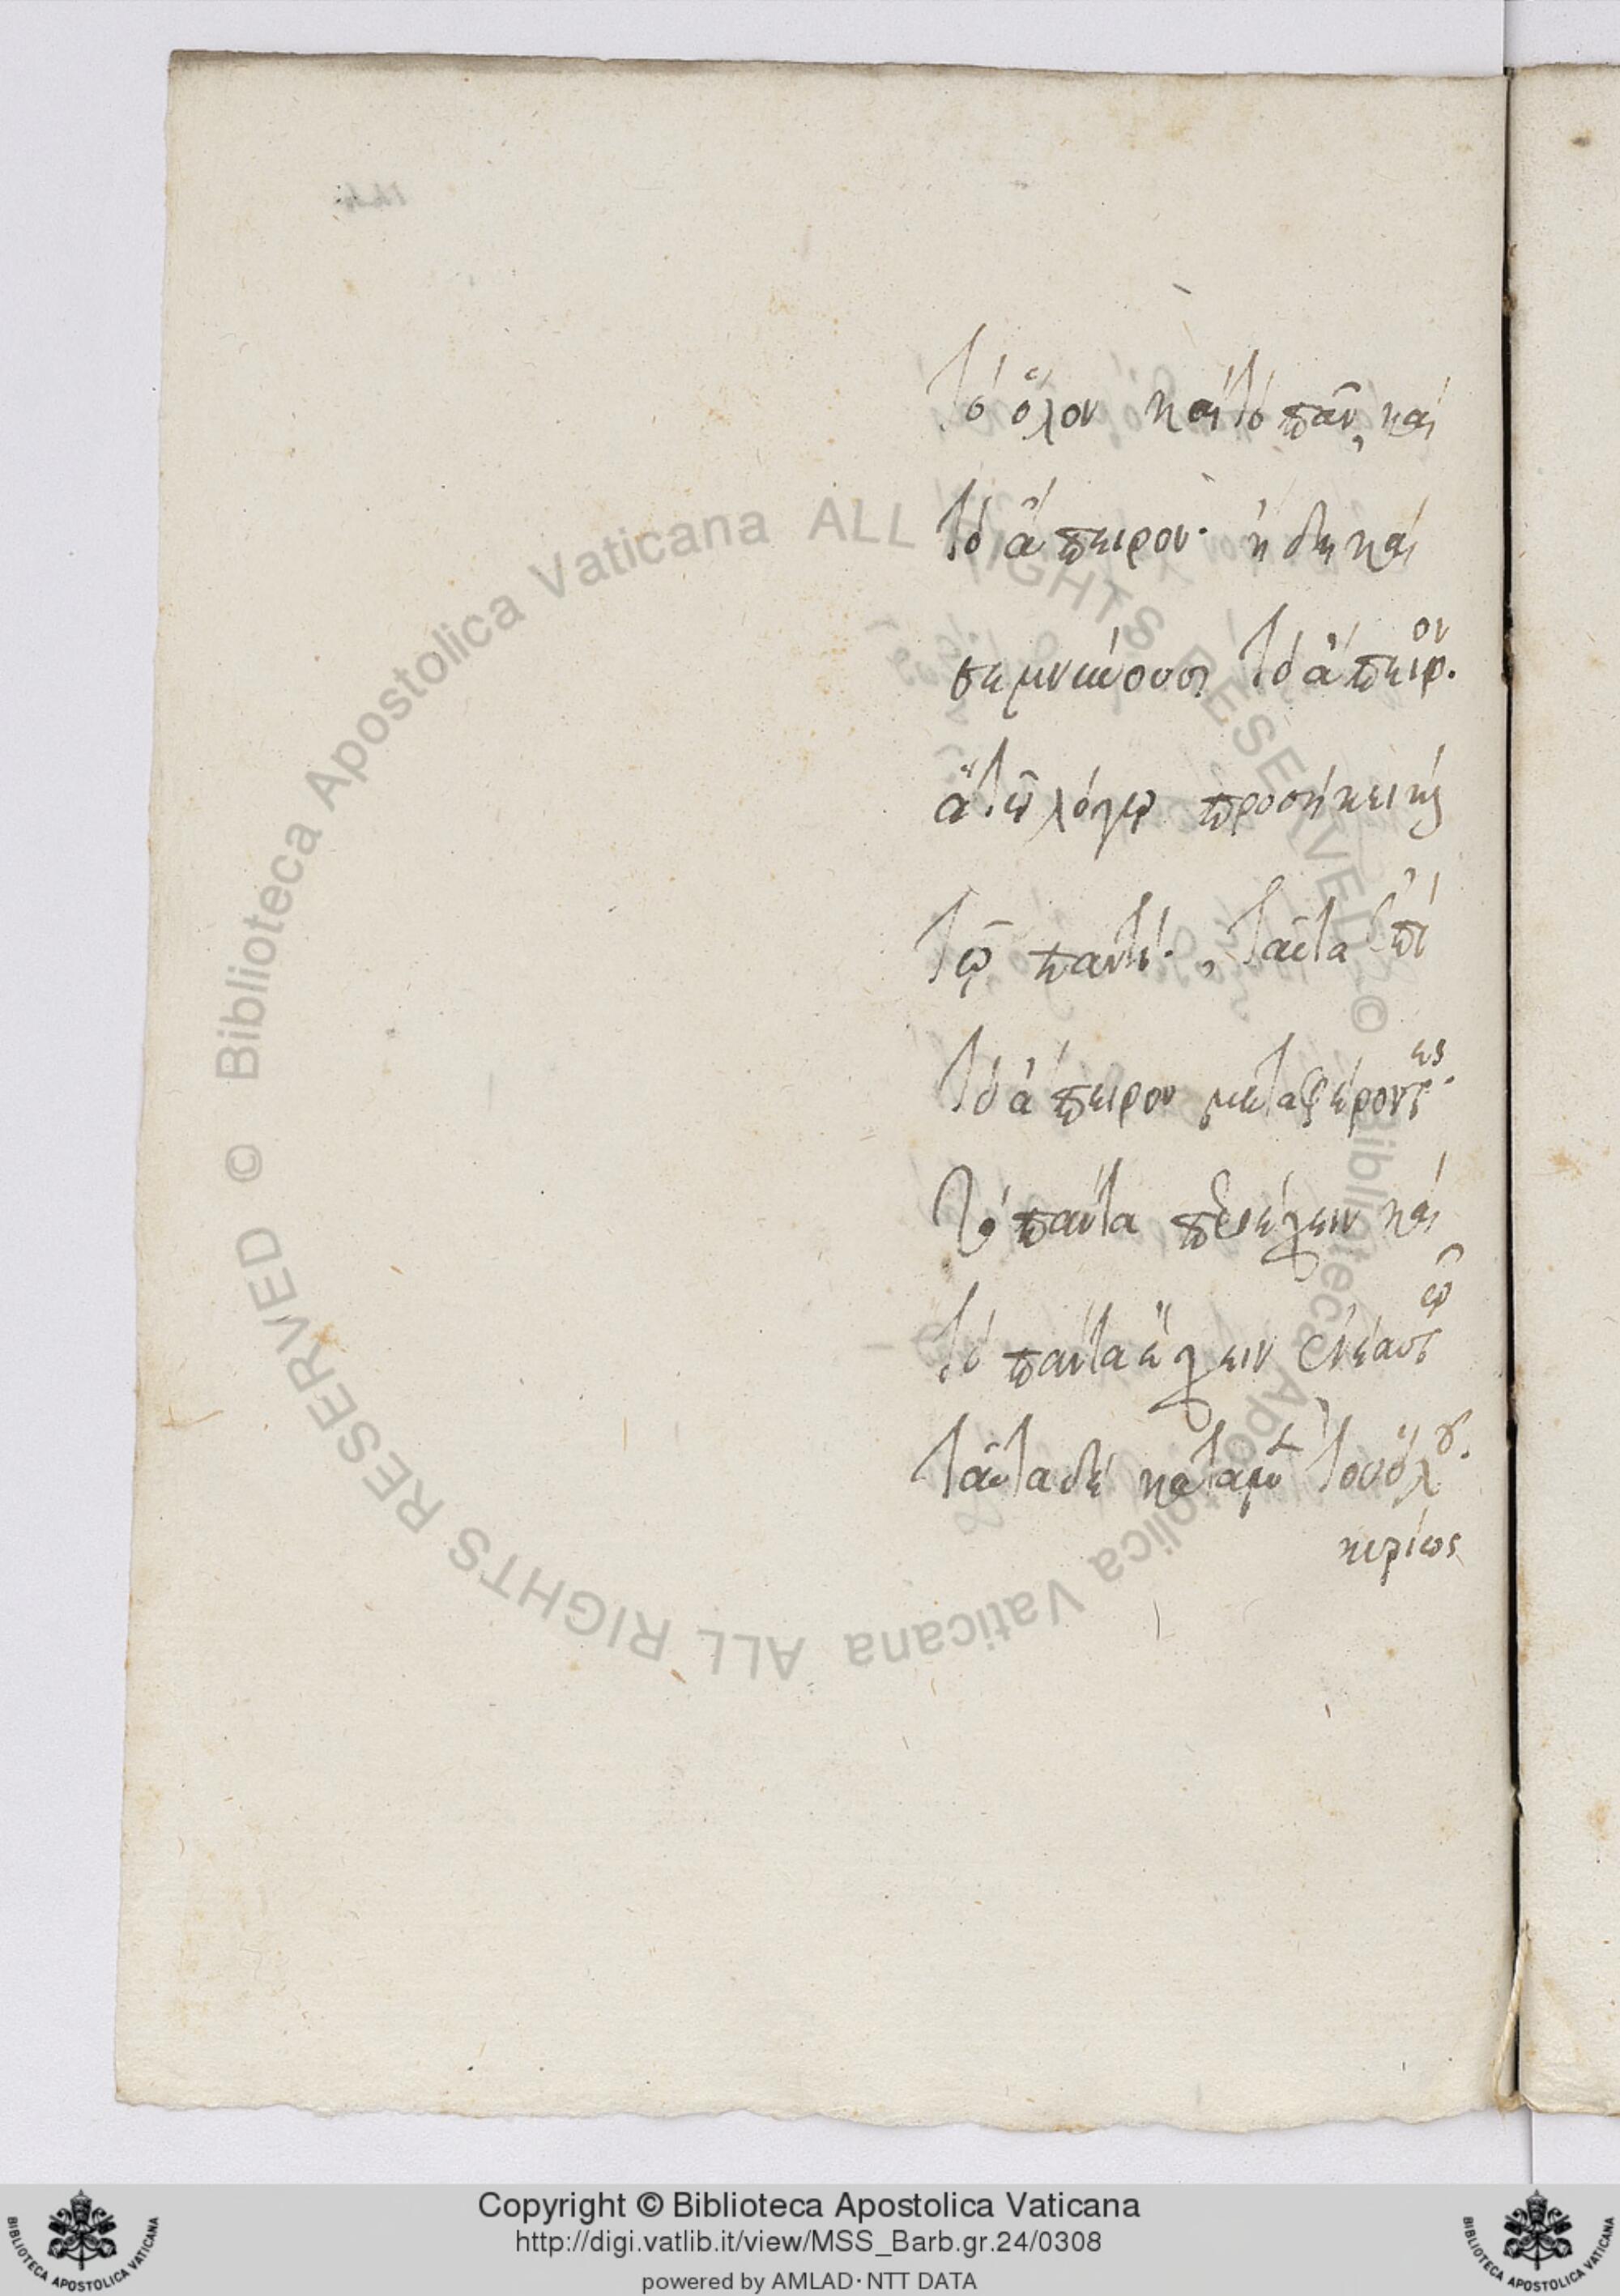 τὸ ὅλον καὶ τὸ πᾶν, καὶ
τὸ ἄπειρον· ἤδη καὶ
σεμνύνουσι τὸ ἄπειρον.
ἃ τῷ λόγῳ προσήκει καὶ
τῷ παντί· ταῦτα ἐπὶ
τὸ ἄπειρον μεταφέροντες·
τὸ πάντα περιέχειν καὶ
τὸ πάντα ἔχειν ἐν ἑαυτῷ
ταῦτα δὲ κατὰ μὲν τοῦ ὅλου.
κυρίως
Biblioteca Apostolica Vaticana ALL RIGHTS RESERVED ©
Biblioteca Apostolica Vaticana ALL RIGHTS RESERVED ©
Copyright © Biblioteca Apostolica Vaticana
http://digi.vatlib.it/view/MSS_Barb.gr.24/0308
powered by AMLAD·NTT DATA
BIBLIOTECA APOSTOLICA VATICANA
BIBLIOTECA APOSTOLICA VATICANA